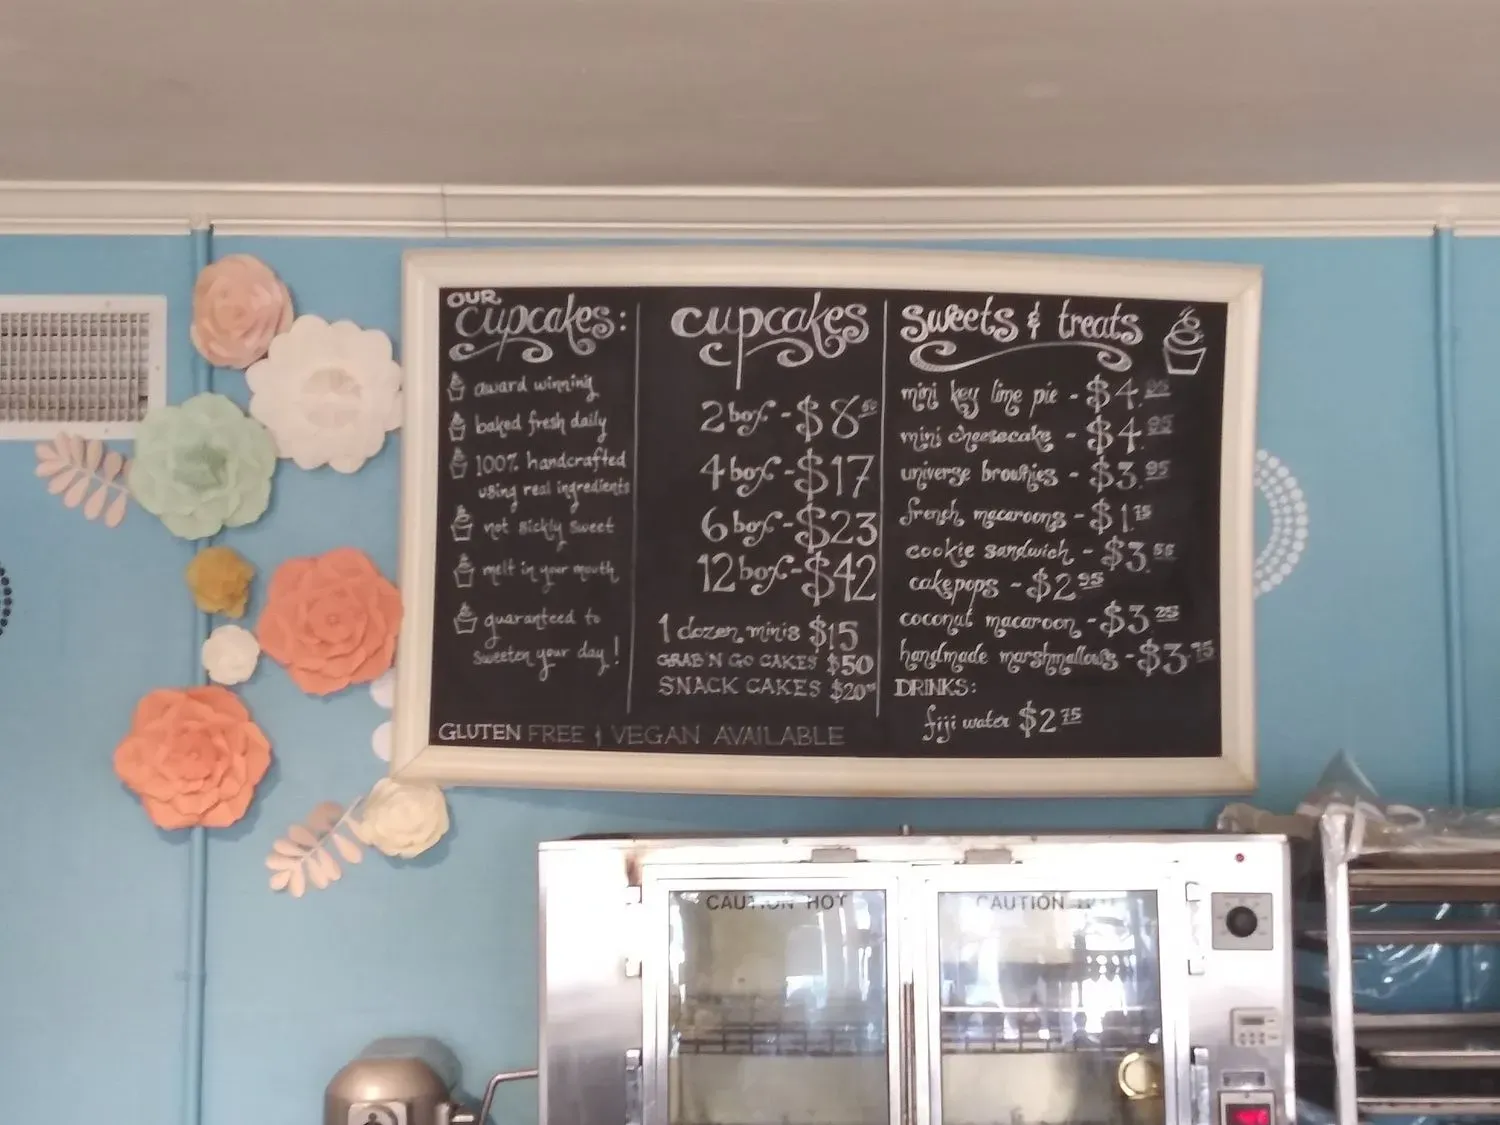 OUR
cupcakes:
award winning
baked fresh daily
100% handcrafted
using real ingredients
not sickly sweet
melt in your mouth
guaranteed to
sweeten your day!
cupcakes
2 box - $8.50
4 box - $17
6 box - $23
12 box - $42
1 dozen minis $15
GRAB'N GO CAKES $50
SNACK CAKES $20
GLUTEN FREE & VEGAN AVAILABLE
sweets & treats
mini key lime pie - $4.95
mini cheesecake - $4.95
universe brownies - $3.95
french macaroons - $1.75
cookie sandwich - $3.55
cakepops - $2.95
coconut macaroon - $3.25
handmade marshmallows - $3.75
DRINKS:
fiji water $2.75
CAUTION HOT
CAUTION